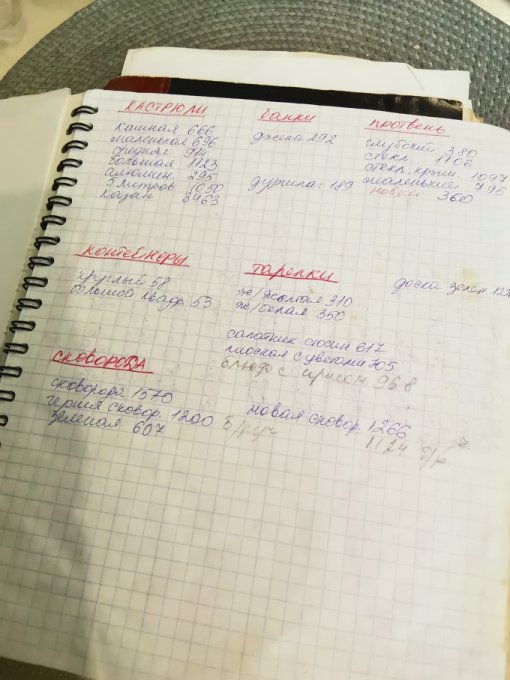 КАСТРЮЛИ
кашная 666
маленькая 696
средняя 944
большая 1123
алюмин. 295
5 литров 1050
казан 3963
банки
джема 292
дуршлаг 189
противень
глубокий 380
стекл. 1106
стекл. крыш. 1047
маленький 795
новый 360
контейнеры
круглый 58
большой квадр. 53
Тарелки
ж/желтая 310
ж/белая 350
салатник 617
плоская с цветами 705
блюдо с 968
доска зелен.
СКОВОРОДА
сковорода 1570
сковор. 1200 б/руч
зеленая 607
новая сковор. 1266
1124 б/р